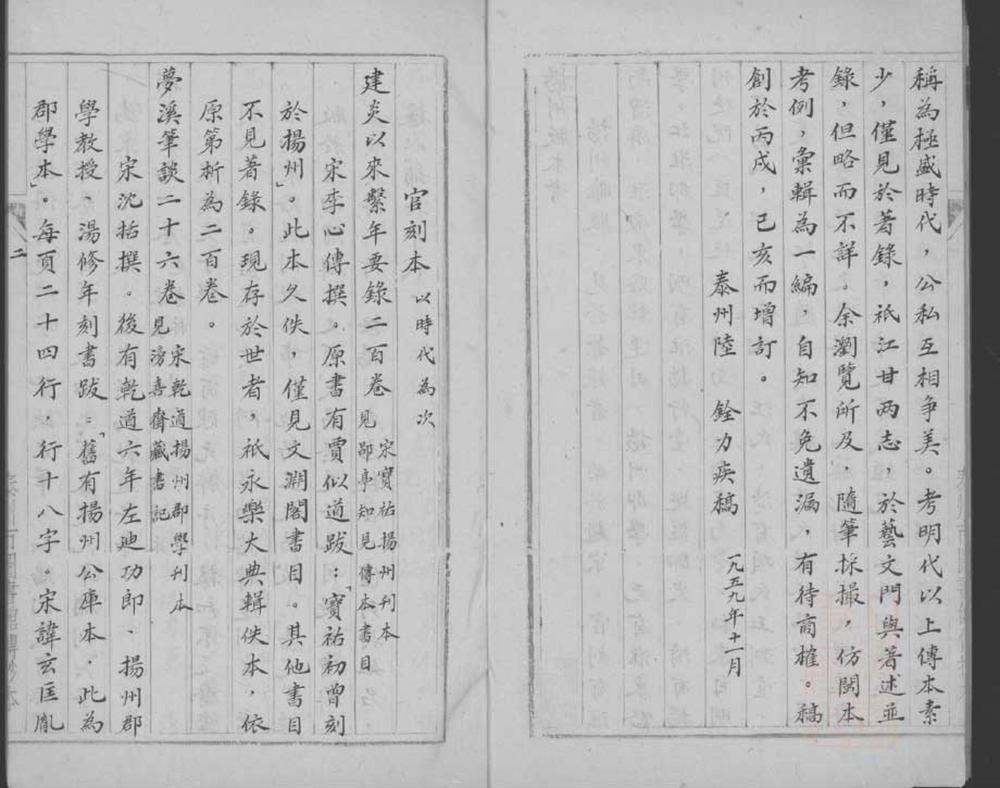 稱為極盛時代，公私互相爭美。考明代以上傳本素
少，僅見於著錄，祇江甘兩志，於藝文門與著述並
錄，但略而不詳。余瀏覽所及，隨筆採撮，仿閩本
考例，彙輯為一編，自知不免遺漏，有待商榷。稿
創於丙戌，己亥而增訂。
泰州陸 銓力疾稿
一九五九年十一月
官刻本 以時代為次
建炎以來繫年要錄二百卷 宋寶祐揚州刊本
見郘亭知見傳本書目
宋李心傳撰。原書有賈似道跋：「寶祐初曾刻
於揚州」。此本久佚，僅見文淵閣書目。其他書目
不見著錄。現存於世者，祇永樂大典輯佚本，依
原第析為二百卷。
夢溪筆談二十六卷 宋乾道揚州郡學刊本
見滂喜齋藏書記
宋沈括撰。後有乾道六年左迪功郎、揚州郡
學教授，湯修年刻書跋：「舊有揚州公庫本，此為
郡學本」。每頁二十四行，行十八字。宋諱玄匡胤
二